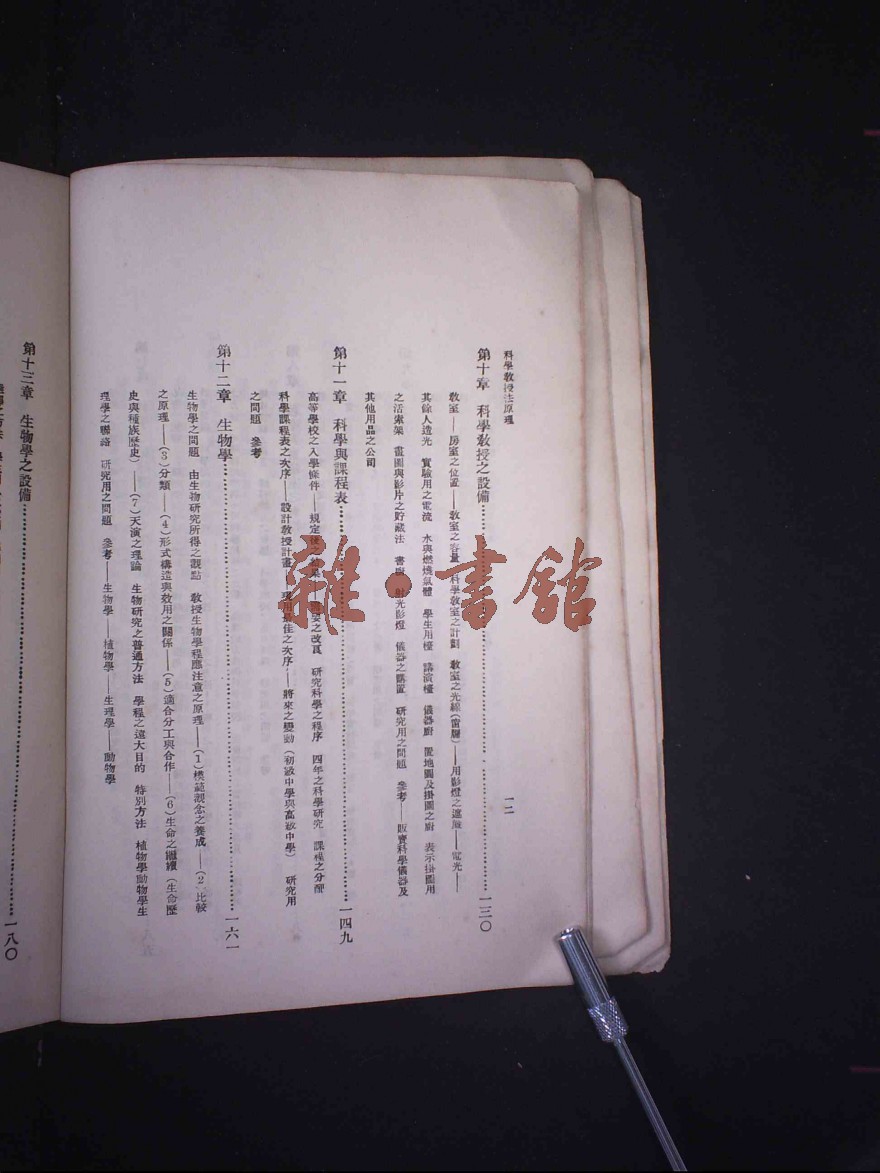 科學敎授法原理
一二
第十章　科學敎授之設備…………一三〇
敎室——房室之位置——敎室之容量　科學敎室之計劃　敎室之光線(窗牖)——用影燈之遮簾——電光——
其餘人造光　實驗用之電流　水與燃燒氣體　學生用檯　講演檯　儀器廚　置地圖及掛圖之廚　表示掛圖用
之活素架　畫圖與影片之貯藏法　書　射光影燈　儀器之購置　研究用之問題　參考——販賣科學儀器及
其他用品之公司
第十一章　科學與課程表…………一四九
高等學校之入學條件——規定後之結果　之改真　研究科學之程序　四年之科學研究　課程之分配
科學課程表之次序——設計敎授計畫——現用最佳之次序——將來之變動(初級中學與高級中學)　研究用
之問題　參考
第十二章　生物學…………一六一
生物學之問題　由生物研究所得之觀點　敎授生物學程應注意之原理——(1)模範觀念之養成——(2)比較
之原理——(3)分類——(4)形式構造與效用之關係——(5)適合分工與合作——(6)生命之繼續(生命歷
史與種族歷史)——(7)天演之理論　生物研究之普通方法　學程之遠大目的　特別方法　植物學動物學生
理學之聯絡　研究用之問題　參考——生物學——植物學——生理學——動物學
第十三章　生物學之設備…………一八〇
雜·書館